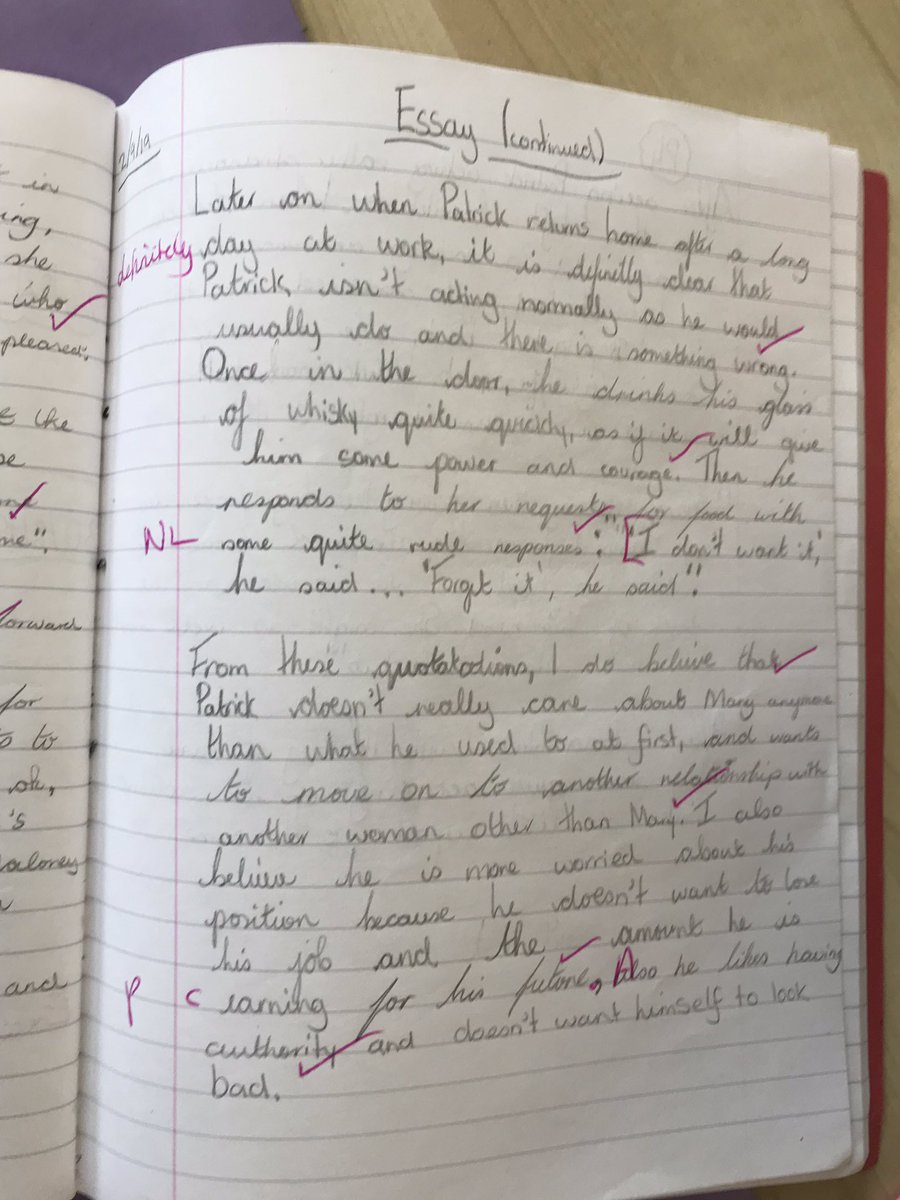 Essay (continued)
2/9/19
Later on when Patrick returns home after a long
definitely day at work, it is definitly clear that
Patrick, isn't acting normally as he would
usually do and there is something wrong.
Once in the door, he drinks his glass
of whisky quite quickly, as if it will give
him some power and courage. Then he
responds to her requests for food with
NL some quite rude responses: "'I don't want it',
he said... 'Forget it', he said".
From these quotatodions, I do belive that
Patrick doesn't really care about Mary anymore
than what he used to at first, and wants
to move on to another relationship with
another woman other than Mary. I also
belive he is more worried about his
position because he doesn't want to lose
his job and the amount he is
P C earning for his future. Also he likes having
authority and doesn't want himself to look
bad.
in
ing,
she
who
pleased".
like
me".
forward
for
to
oh,
's
aloney
and